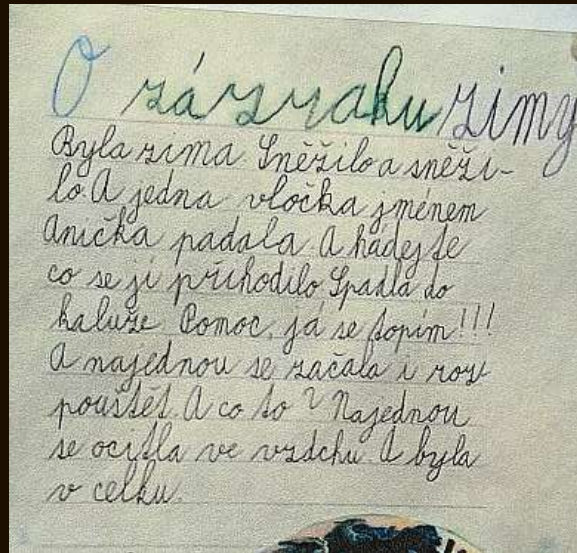 O zázraku zimy
Byla zima. Sněžilo a sněži-
lo. A jedna vločka jménem
Anička padala. A hádejte
co se jí přihodilo. Spadla do
kaluže. Pomoc, já se topím!!!
A najednou se začala i roz
pouštět. A co to? Najednou
se ocitla ve vzdchu. A byla
v celku.